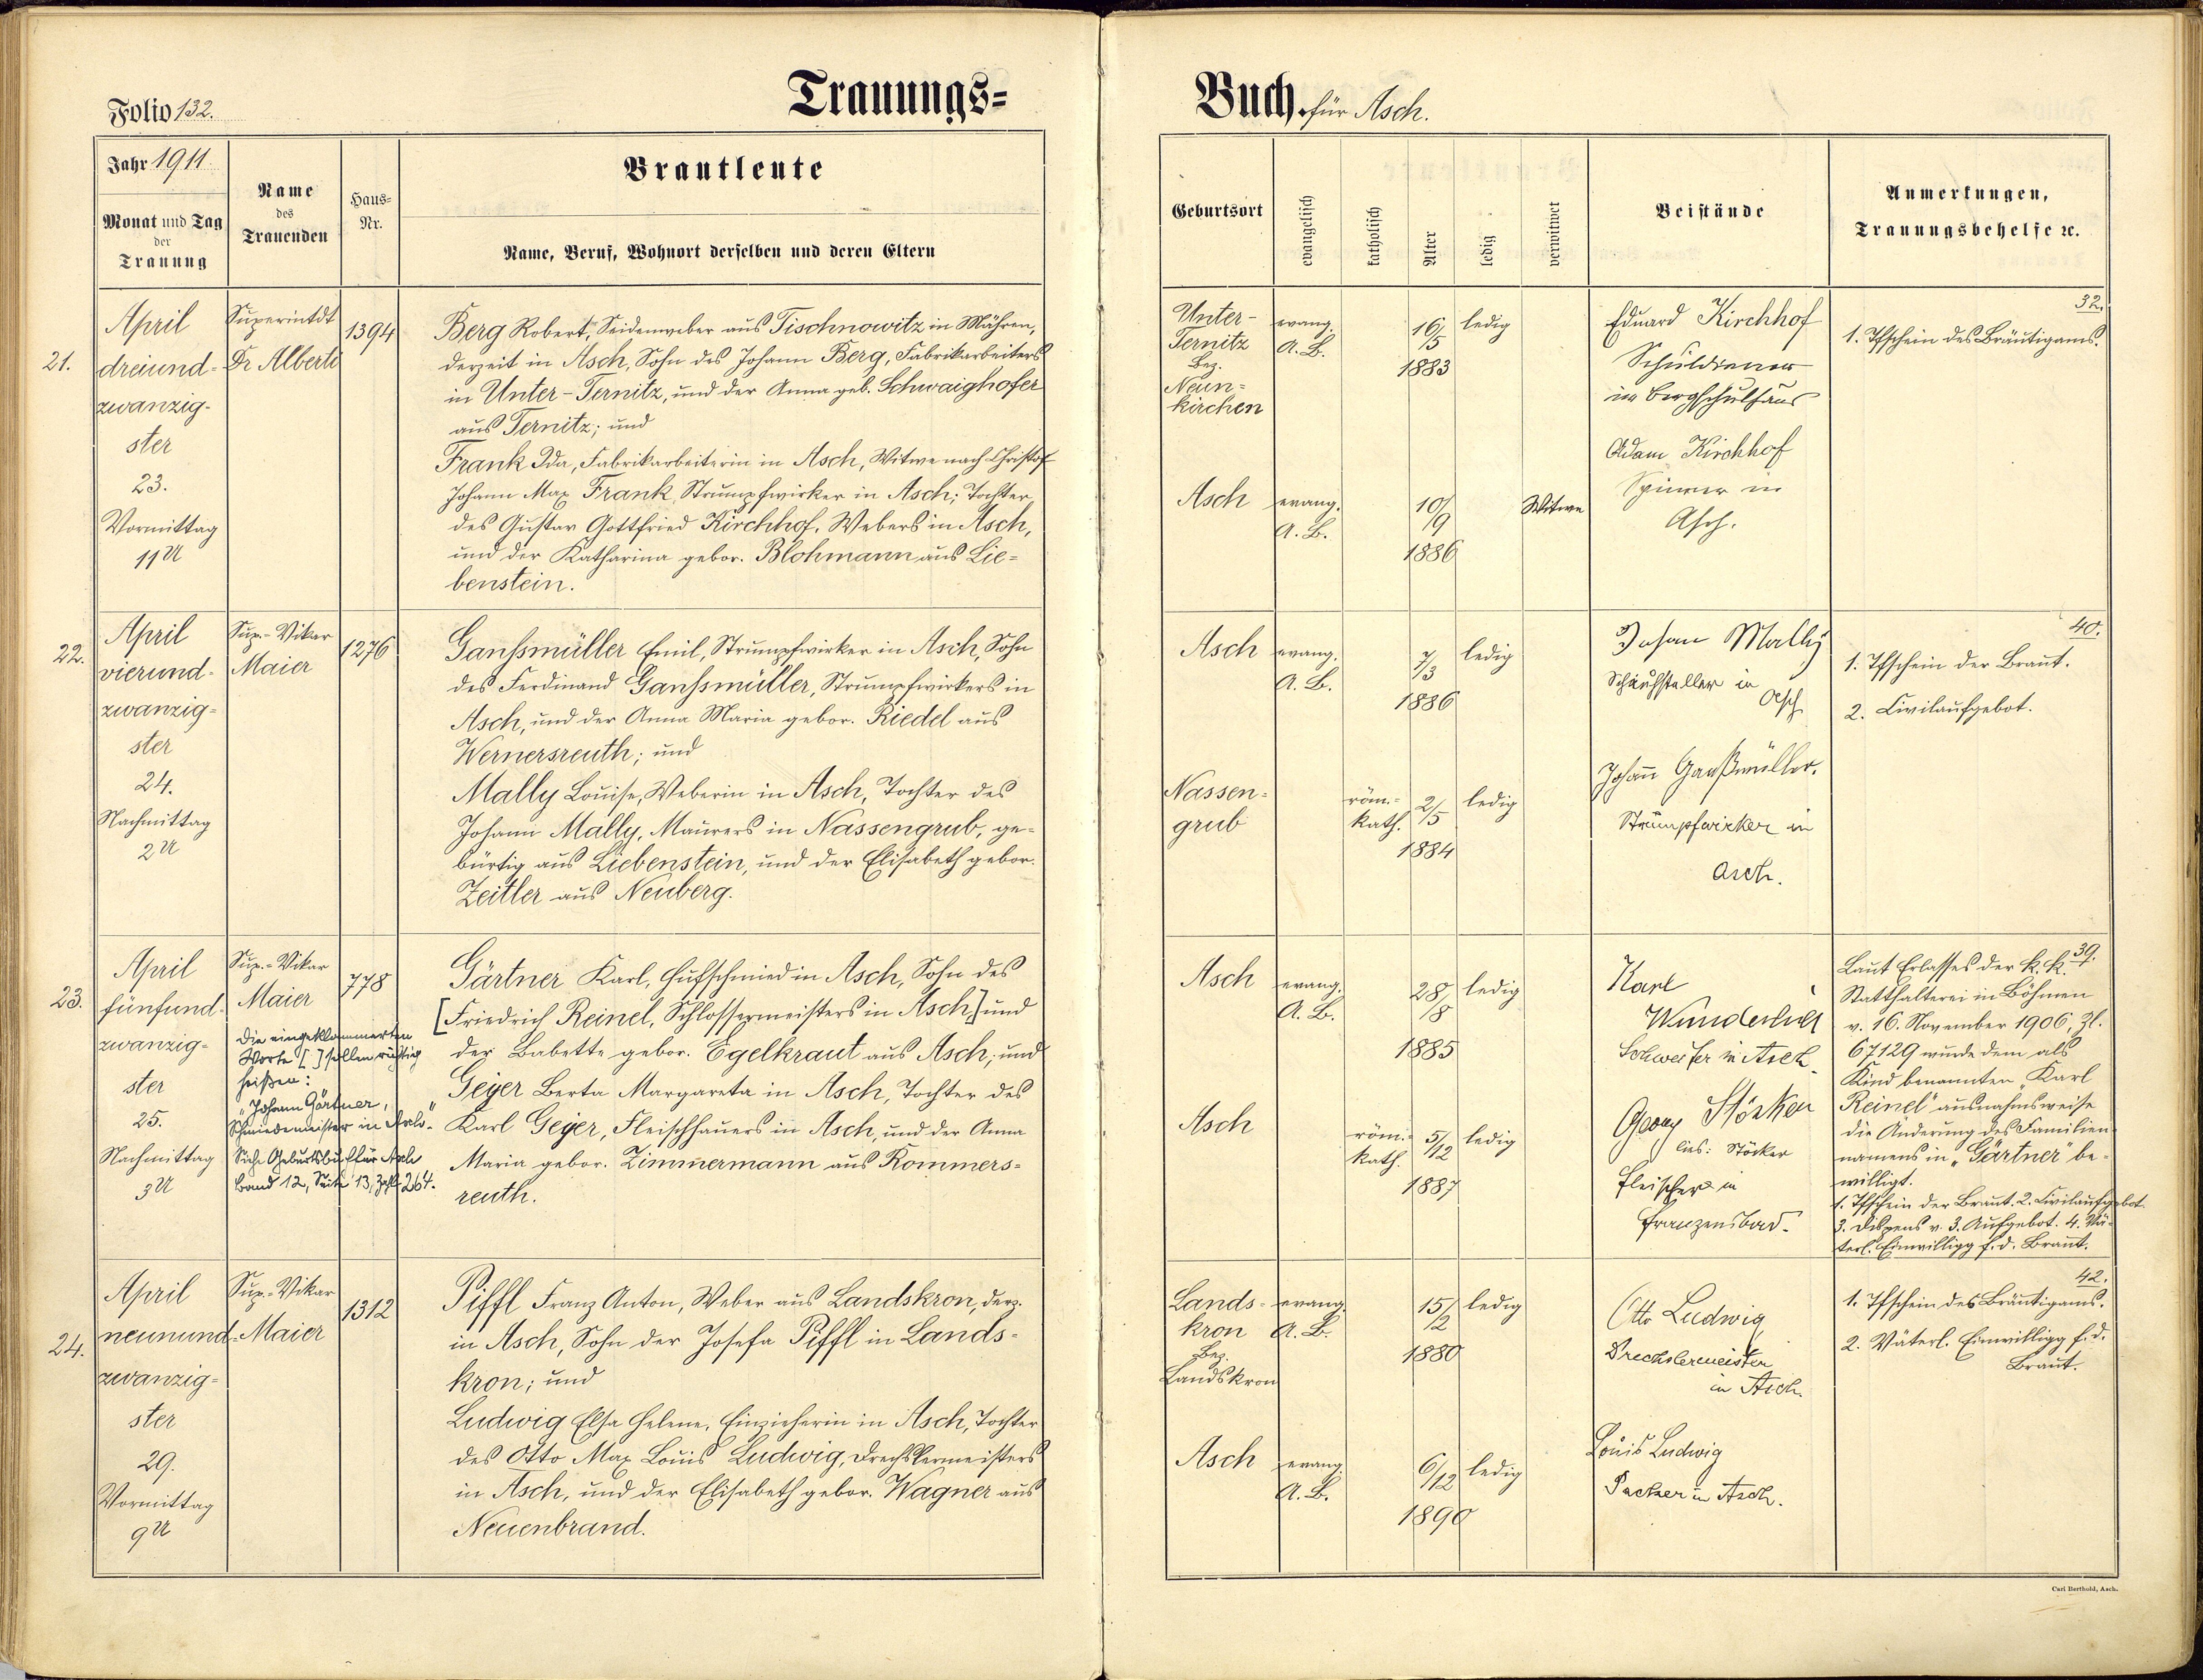 Folio 132.
Trauungs=
Buch für Asch.
Jahr 1911.
Monat und Tag
der
Trauung
Name
des
Trauenden
Haus=
Nr.
Brautleute
Name, Beruf, Wohnort derselben und deren Eltern
Geburtsort
evangelisch
katholisch
Alter
ledig
verwitwet
Beistände
Anmerkungen,
Trauungsbehelfe ꝛc.
21.
April
dreiund-
zwanzig-
ster
23.
Vormittag
11 U
Superintdt
Dr Alberti
1394
Berg Robert, Seidenweber aus Tischnowitz in Mähren,
derzeit in Asch, Sohn des Johann Berg, Fabrikarbeiters
in Unter-Ternitz, und der Anna geb. Schwaighofer
aus Ternitz; und
Frank Ida, Fabrikarbeiterin in Asch, Witwe nach Christof
Johann Max Frank, Strumpfwirker in Asch; Tochter
des Gustav Gottfried Kirchhof, Webers in Asch,
und der Katharina gebor. Blohmann aus Lie=
benstein.
Unter-
Ternitz
Bez.
Neun=
kirchen
evang.
A. B.
16/5
1883
ledig
Asch
evang.
A. B.
10/9
1886
Witwe
Eduard Kirchhof
Schuldiener
im Bergschulhaus
Adam Kirchhof
Spinner in
Asch.
32.
1. Tfschein des Bräutigams.
22.
April
vierund-
zwanzig=
ster
24.
Nachmittag
2 U
Sup.-Vikar
Maier
1276
Ganssmüller Emil, Strumpfwirker in Asch, Sohn
des Ferdinand Ganssmüller, Strumpfwirkers in
Asch, und der Anna Maria gebor. Riedel aus
Wernersreuth; und
Mally Louise, Weberin in Asch, Tochter des
Johann Mally, Maurers in Nassengrub, ge-
bürtig aus Liebenstein, und der Elisabeth gebor.
Zeitler aus Neuberg.
Asch
evang.
A. B.
7/3
1886
ledig
Nassen=
grub
röm.=
kath.
2/5
1884
ledig
Johan Mally
in
Asch
Johann Ganßmüller.
Strumpfwirker in
Asch.
40.
1. Tfschein der Braut.
2. Civilaufgebot.
23.
April
fünfund-
zwanzig=
ster
25.
Nachmittag
3 U
Sup.=Vikar
Maier
Die eingeklammerten
Worte [ ] sollen richtig
heißen:
„Johann Gärtner,
Schmiedemeister in Asch."
Siehe Geburtsbuch für Asch
Band 12, Seite 13, Zahl 264.
778
Gärtner Karl, Hufschmied in Asch, Sohn des
[Friedrich Reinel, Schlossermeisters in Asch,] und
der Babette gebor. Egelkraut aus Asch; und
Geyer Berta Margareta in Asch, Tochter des
Karl Geyer, Fleischhauers in Asch, und der Anna
Maria gebor. Zimmermann aus Rommers=
reuth.
Asch
evang.
A. B.
28/8
1885
ledig
Asch
röm.=
kath.
5/12
1887
ledig
Karl
Wunderlich
in Asch.
Georg Stöcker
lies: Stöcker
Fleischer in
Franzensbad.
39.
Laut Erlasses der k. k.
Statthalterei in Böhmen
v. 16. November 1906, Zl.
67129 wurde dem als
Kind benannten „Karl
Reinel" ausnahmsweise
die Änderung des Familien-
namens in „Gärtner" be-
willigt.
1. Tfschein der Braut. 2. Civilaufgebot.
3. Dispens v. 3. Aufgebot. 4. Vä-
terl. Einwilligg f. d. Braut.
24.
April
neunund-
zwanzig=
ster
29.
Vormittag
9 U
Sup.-Vikar
Maier
1312
Piffl Franz Anton, Weber aus Landskron, derz.
in Asch, Sohn der Josefa Piffl in Lands=
kron; und
Ludwig Elsa Helene, Einzieherin in Asch, Tochter
des Otto Max Louis Ludwig, Drechslermeisters
in Asch, und der Elisabeth gebor. Wagner aus
Neuenbrand.
Lands=
kron
Bez.
Landskron
evang.
A. B.
15/2
1880
ledig
Asch
evang.
A. B.
6/12
1890
ledig
Otto Ludwig
Drechslermeister
in Asch.
Louis Ludwig
Packer in Asch.
42.
1. Tfschein des Bräutigams.
2. Väterl. Einwilligg f. d.
Braut.
Carl Berthold, Asch.